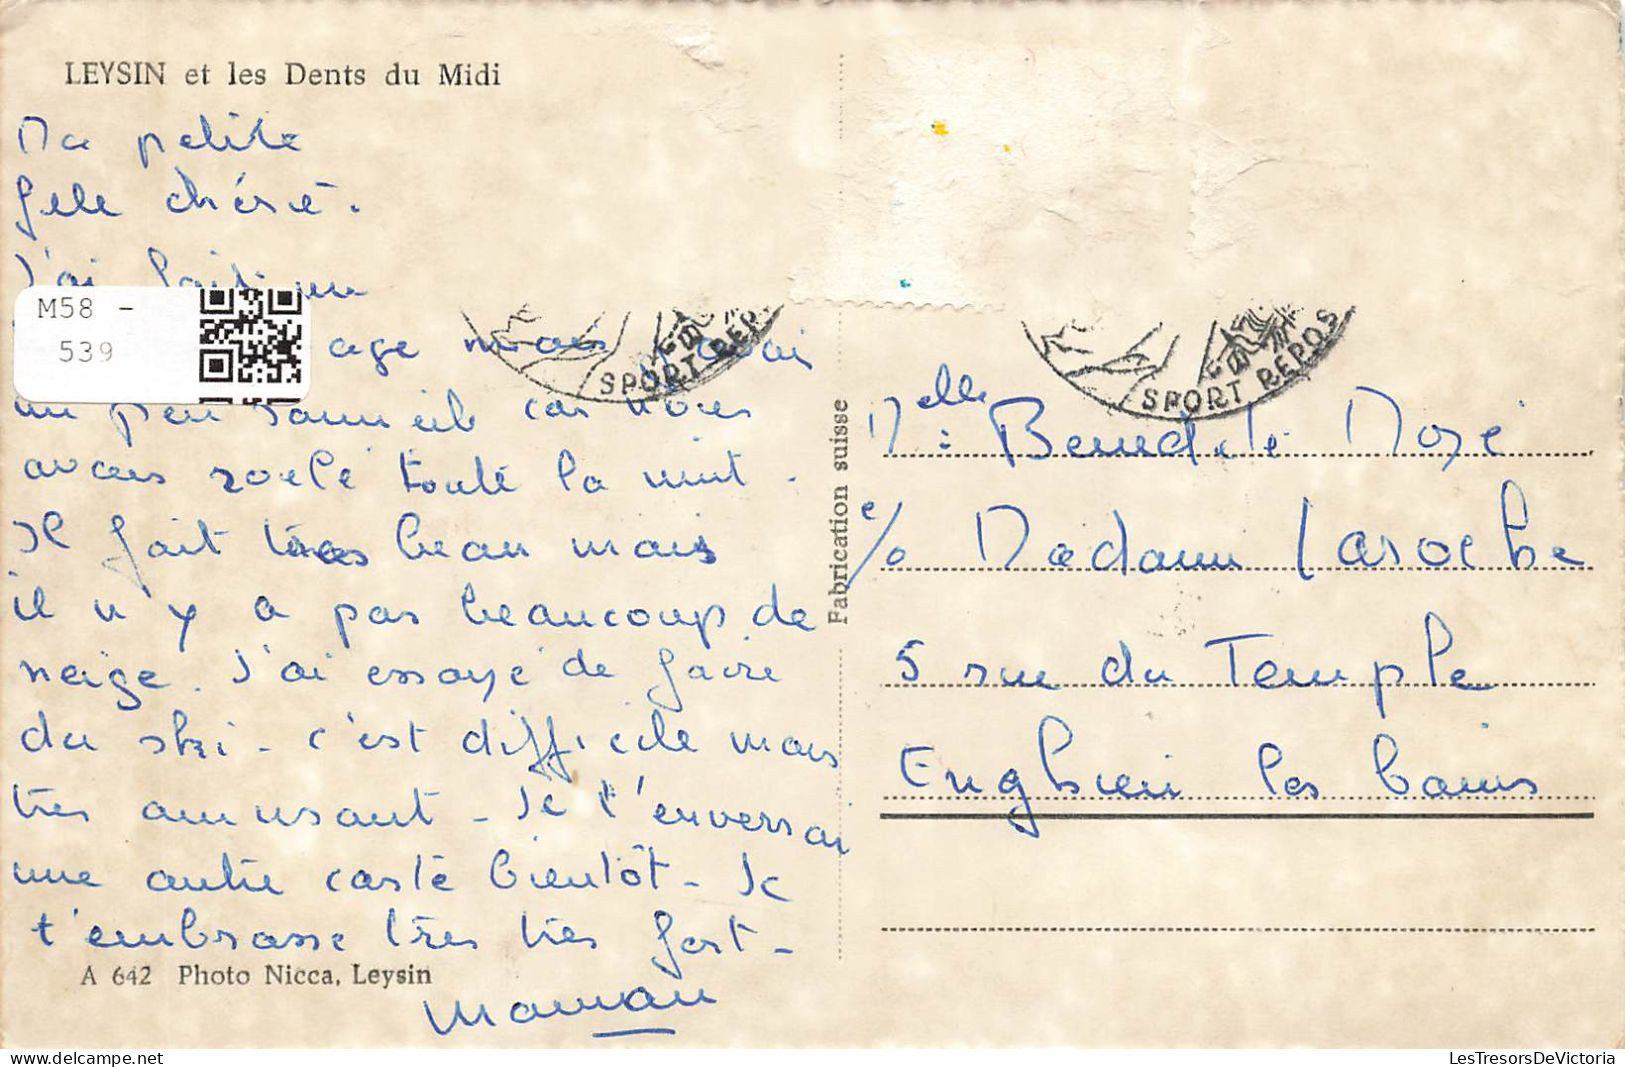 LEYSIN et les Dents du Midi
Ma petite
fille chérie.
J'ai fait un
age mais j'avai
un peu sommeil car nous
avons roulé toute la nuit.
Il fait très beau mais
il n'y a pas beaucoup de
neige. J'ai essayé de faire
du ski - c'est difficile mais
très amusant - Je t'enverrai
une autre carte bientôt - Je
t'embrasse très très fort -
A 642 Photo Nicca, Leysin
Maman
M58 -
539
SPORT REP
SPORT REPOS
Fabrication suisse
Melle Benedicte
c/o Madame Laroche
5 rue du Temple
Enghien les bains
LesTresorsDeVictoria